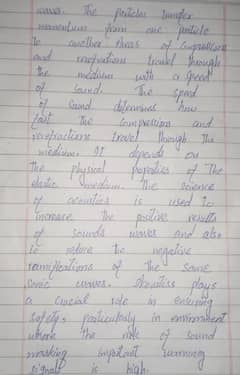 waves. The particles transfer
momentum from one particle
to another. Areas of compressions
and rarefractions travel through
the medium with a speed
of sound. The speed
of sound determines how
fast the compressions and
rarefractions travel through the
medium. It depends on
the physical properties of the
elastic medium. The science
of acoustics is used to
increase the positive results
of sounds waves and also
to reduce the negative
ramifications of the same
sonic waves. Acoustics plays
a crucial role in ensuring
safety, particularly in environment
where the risk of sound
masking important warning
signals is high.